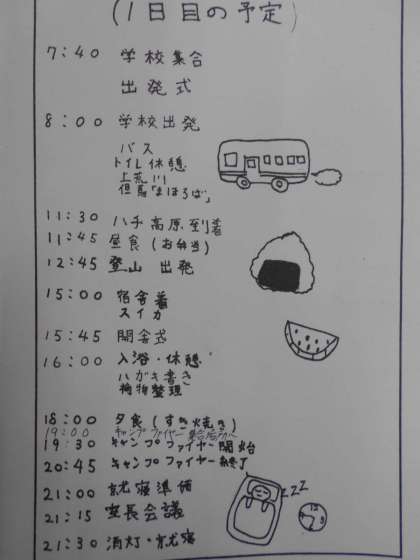 (1日目の予定)
7:40 学校集合
出発式
8:00 学校出発
バス
トイレ休憩
上荒川
但馬「まほろば」
11:30 ハチ高原到着
11:45 昼食(お弁当)
12:45 登山 出発
15:00 宿舎着
スイカ
15:45 開舎式
16:00 入浴・休憩
ハガキ書き
荷物整理
18:00 夕食(すき焼き)
19:00 キャンプファイヤー集合場所へ
19:30 キャンプファイヤー開始
20:45 キャンプファイヤー終了
21:00 就寝準備
zzz
21:15 室長会議
21:30 消灯・就寝